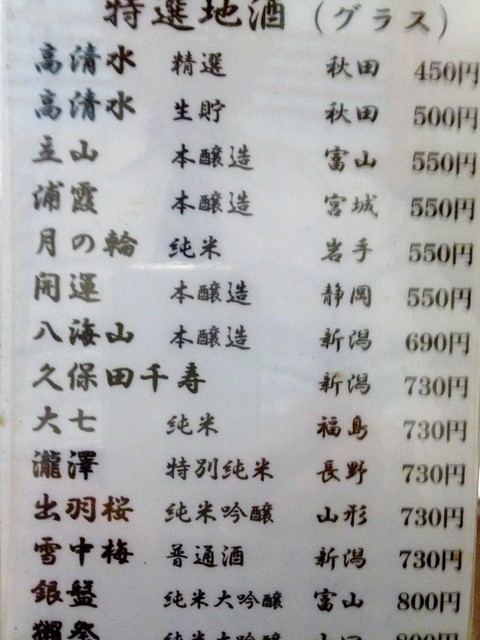 特選地酒（グラス）
高清水 精選 秋田 450円
高清水 生貯 秋田 500円
立山 本醸造 富山 550円
浦霞 本醸造 宮城 550円
月の輪 純米 岩手 550円
開運 本醸造 静岡 550円
八海山 本醸造 新潟 690円
久保田千寿 新潟 730円
大七 純米 福島 730円
瀧澤 特別純米 長野 730円
出羽桜 純米吟醸 山形 730円
雪中梅 普通酒 新潟 730円
銀盤 純米大吟醸 富山 800円
獺祭 純米大吟醸 山口